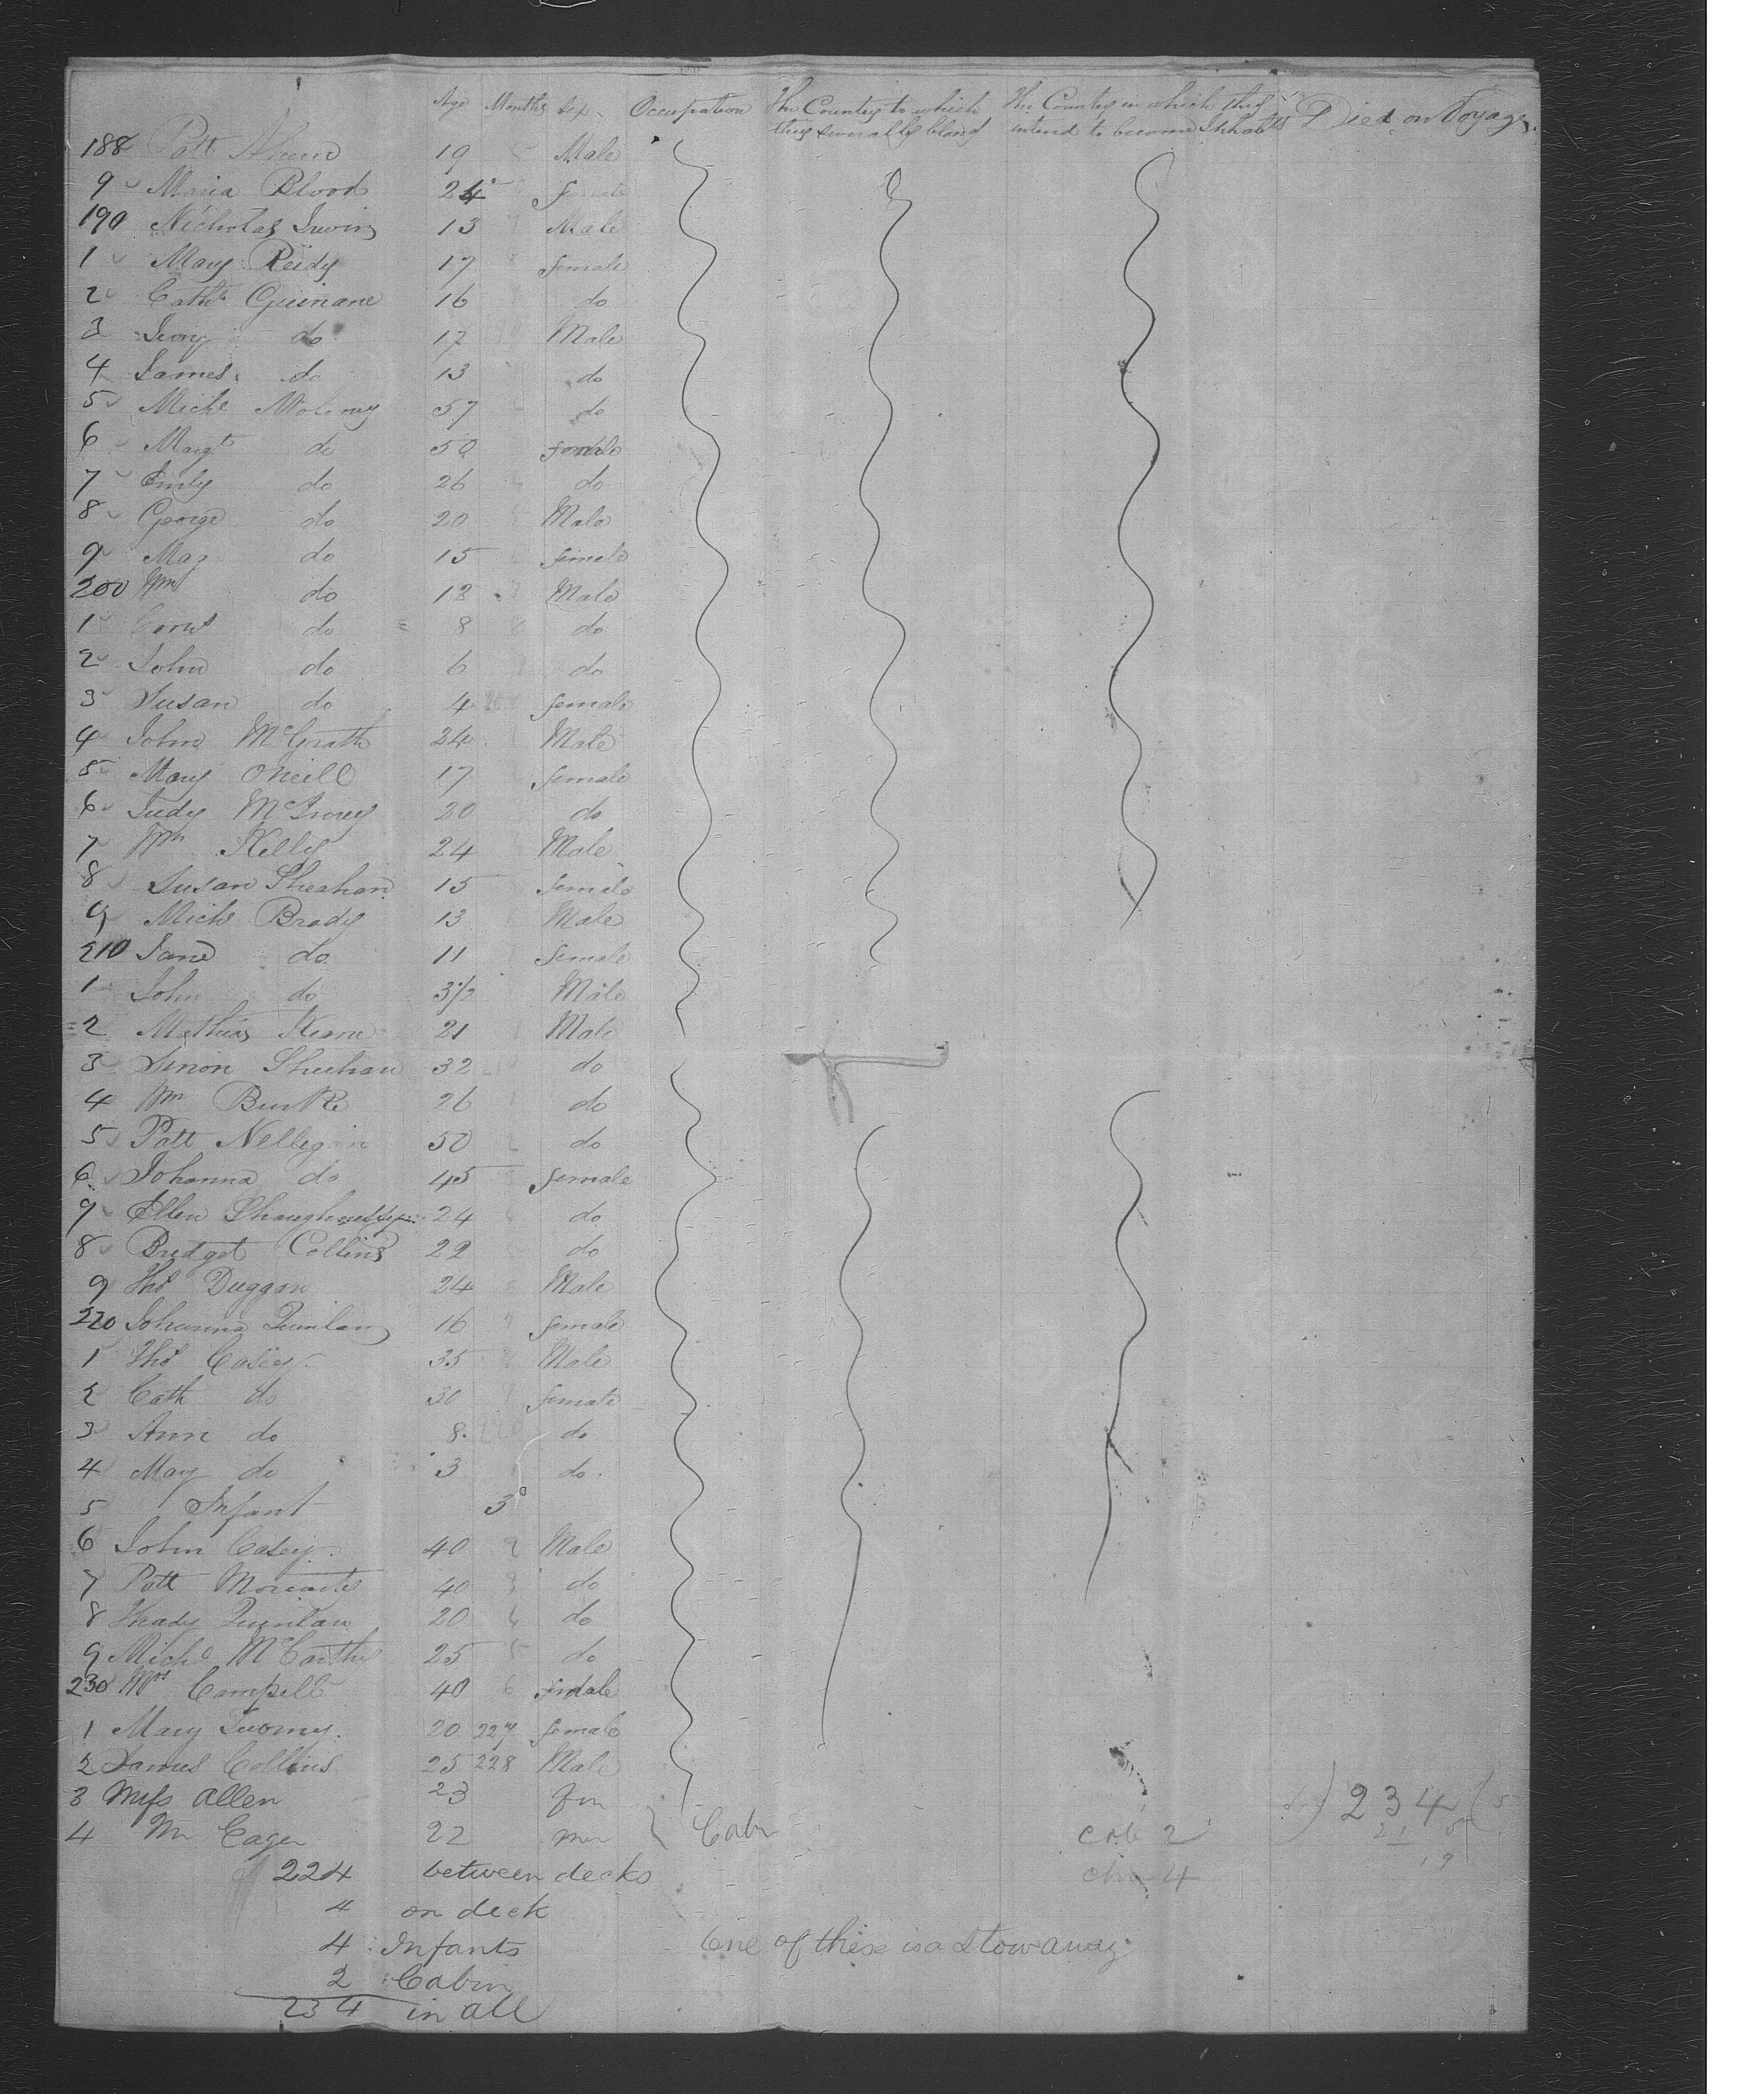 Age Months Sex Occupation The Country to which they severally belong The Country in which they intend to become Inhabts Died on Voyage
188 Patt 19 Male
9 Maria Blood 24 female
190 Nicholas Irwin 13 Male
1 Mary Reidy 17 female
2 Cath Guinane 16 do
3 do 17 Male
4 James do 13 do
5 Michl Moloney 57 do
6 Margt do 50 female
7 Emly do 26 do
8 George do 20 Male
9 May do 15 female
200 Wm do 12 Male
1 Corns do 8 do
2 John do 6 do
3 Susan do 4 female
4 John McGrath 24 Male
5 Mary ONeill 17 female
6 Judy 20 do
7 Wm Kelly 24 Male
8 Susan Sheahan 15 female
9 Michl Brady 13 Male
210 Jane do 11 female
1 John do 3½ Male
2 Mathias Keane 21 Male
3 Simon Sheehan 32 do
4 Wm Burke 26 do
5 Patt Nellegan 50 do
6 Johanna do 45 female
7 Ellen Shaughnessy 24 do
8 Bridget Collins 22 do
9 Thos Duggan 24 Male
220 Johanna Quinlan 16 female
1 Thos Casey 35 Male
2 Cath do 30 female
3 Ann do 8 do
4 May do 3 do
5 Infant 3
6 John Casey 40 Male
7 Patt 40 do
8 Thady Quinlan 20 do
9 Michl McCarthy 25 do
230 Mrs Campell 40 female
1 Mary Twomy 20 227 female
2 James Collins 25 228 Male
3 Miss Allen 23 fem
4 Mr Eager 22 Cabn
224 between decks
4 on deck
4 Infants One of these is a Stowaway
2 Cabin
234 in all
234
21
19